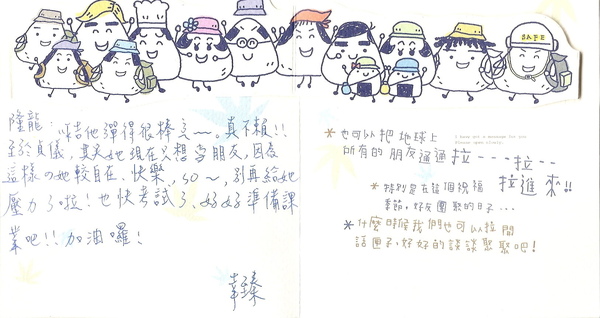 SAFE
隆龍:
吉他彈得很棒ㄜ~。真不賴!!
至於貞儀,其實她現在只想当朋友,因為
這樣の她較自在、快樂,so~,別再給她
壓力了啦!也快考試了、好好準備課
業吧!!加油囉!
*也可以把地球上
所有的朋友通通拉---拉--
拉進來!!
*特別是在這個祝福
季節,好友團聚的日子...
*什麼時候我們也可以拉開
話匣子,好好的談談聚聚吧!